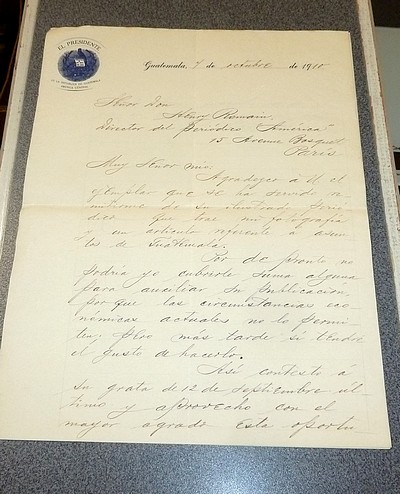 EL PRESIDENTE
DE LA REPÚBLICA DE GUATEMALA
AMÉRICA CENTRAL
Guatemala, 7 de octubre de 1910
Señor Don
Henry Romain,
Director del Periódico "América"
15 Avenue Bosquet
París
Muy Señor mío:
Agradezco á U. el
ejemplar que se ha servido re
mitirme de su ilustrado perió
dico que trae mi fotografía
y un artículo referente á asun
tos de Guatemala.
Por de pronto no
podría yo cubrirle suma alguna
para auxiliar su publicación,
por que las circunstancias eco
nómicas actuales no lo permi
ten; pero más tarde si tendré
el gusto de hacerlo.
Así contesto á
su grata de 12 de septiembre úl
timo y aprovecho con el
mayor agrado esta oportu